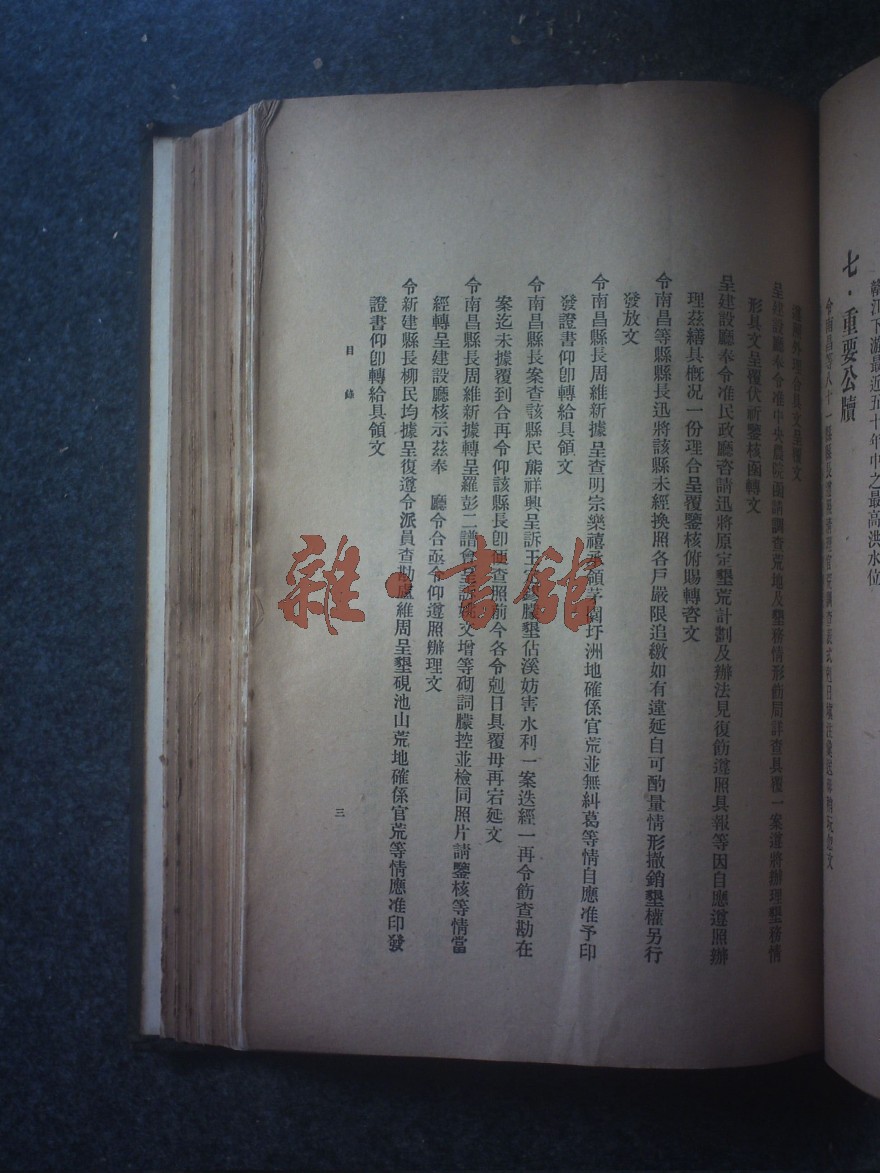 贛江下游最近五十年中之最高洪水位
七．重要公牘
令南昌等八十一縣縣長
理合具文呈覆文
呈建設廳奉令准中央農院函請調查荒地及墾務情形飭局詳查具覆一案遵將辦理墾務情
形具文呈覆伏祈鑒核函轉文
呈建設廳奉令准民政廳咨請迅將原定墾荒計劃及辦法見復飭遵照具報等因自應遵照辦
理茲繕具概況一份理合呈覆鑒核俯賜轉咨文
令南昌等縣縣長迅將該縣未經換照各戶嚴限追繳如有違延自可酌量情形撤銷墾權另行
發放文
令南昌縣長周維新據呈查明宗樂禧承領茅園圩洲地確係官荒並無糾葛等情自應准予印
發證書仰卽轉給具領文
令南昌縣長案查該縣民熊祥興呈訴王朦墾佔溪妨害水利一案迭經一再令飭查勘在
案迄未據覆到合再令仰該縣長卽便查照前今各令剋日具覆毋再宕延文
令南昌縣長周維新據轉呈羅彭二譜會呈訴姚文增等砌詞朦控並檢同照片請鑒核等情當
經轉呈建設廳核示茲奉　廳令合亟令仰遵照辦理文
令新建縣長柳民均據呈復遵令派員查勘盧維周呈墾硯池山荒地確係官荒等情應准印發
證書仰卽轉給具領文
目錄
三
雜·書館